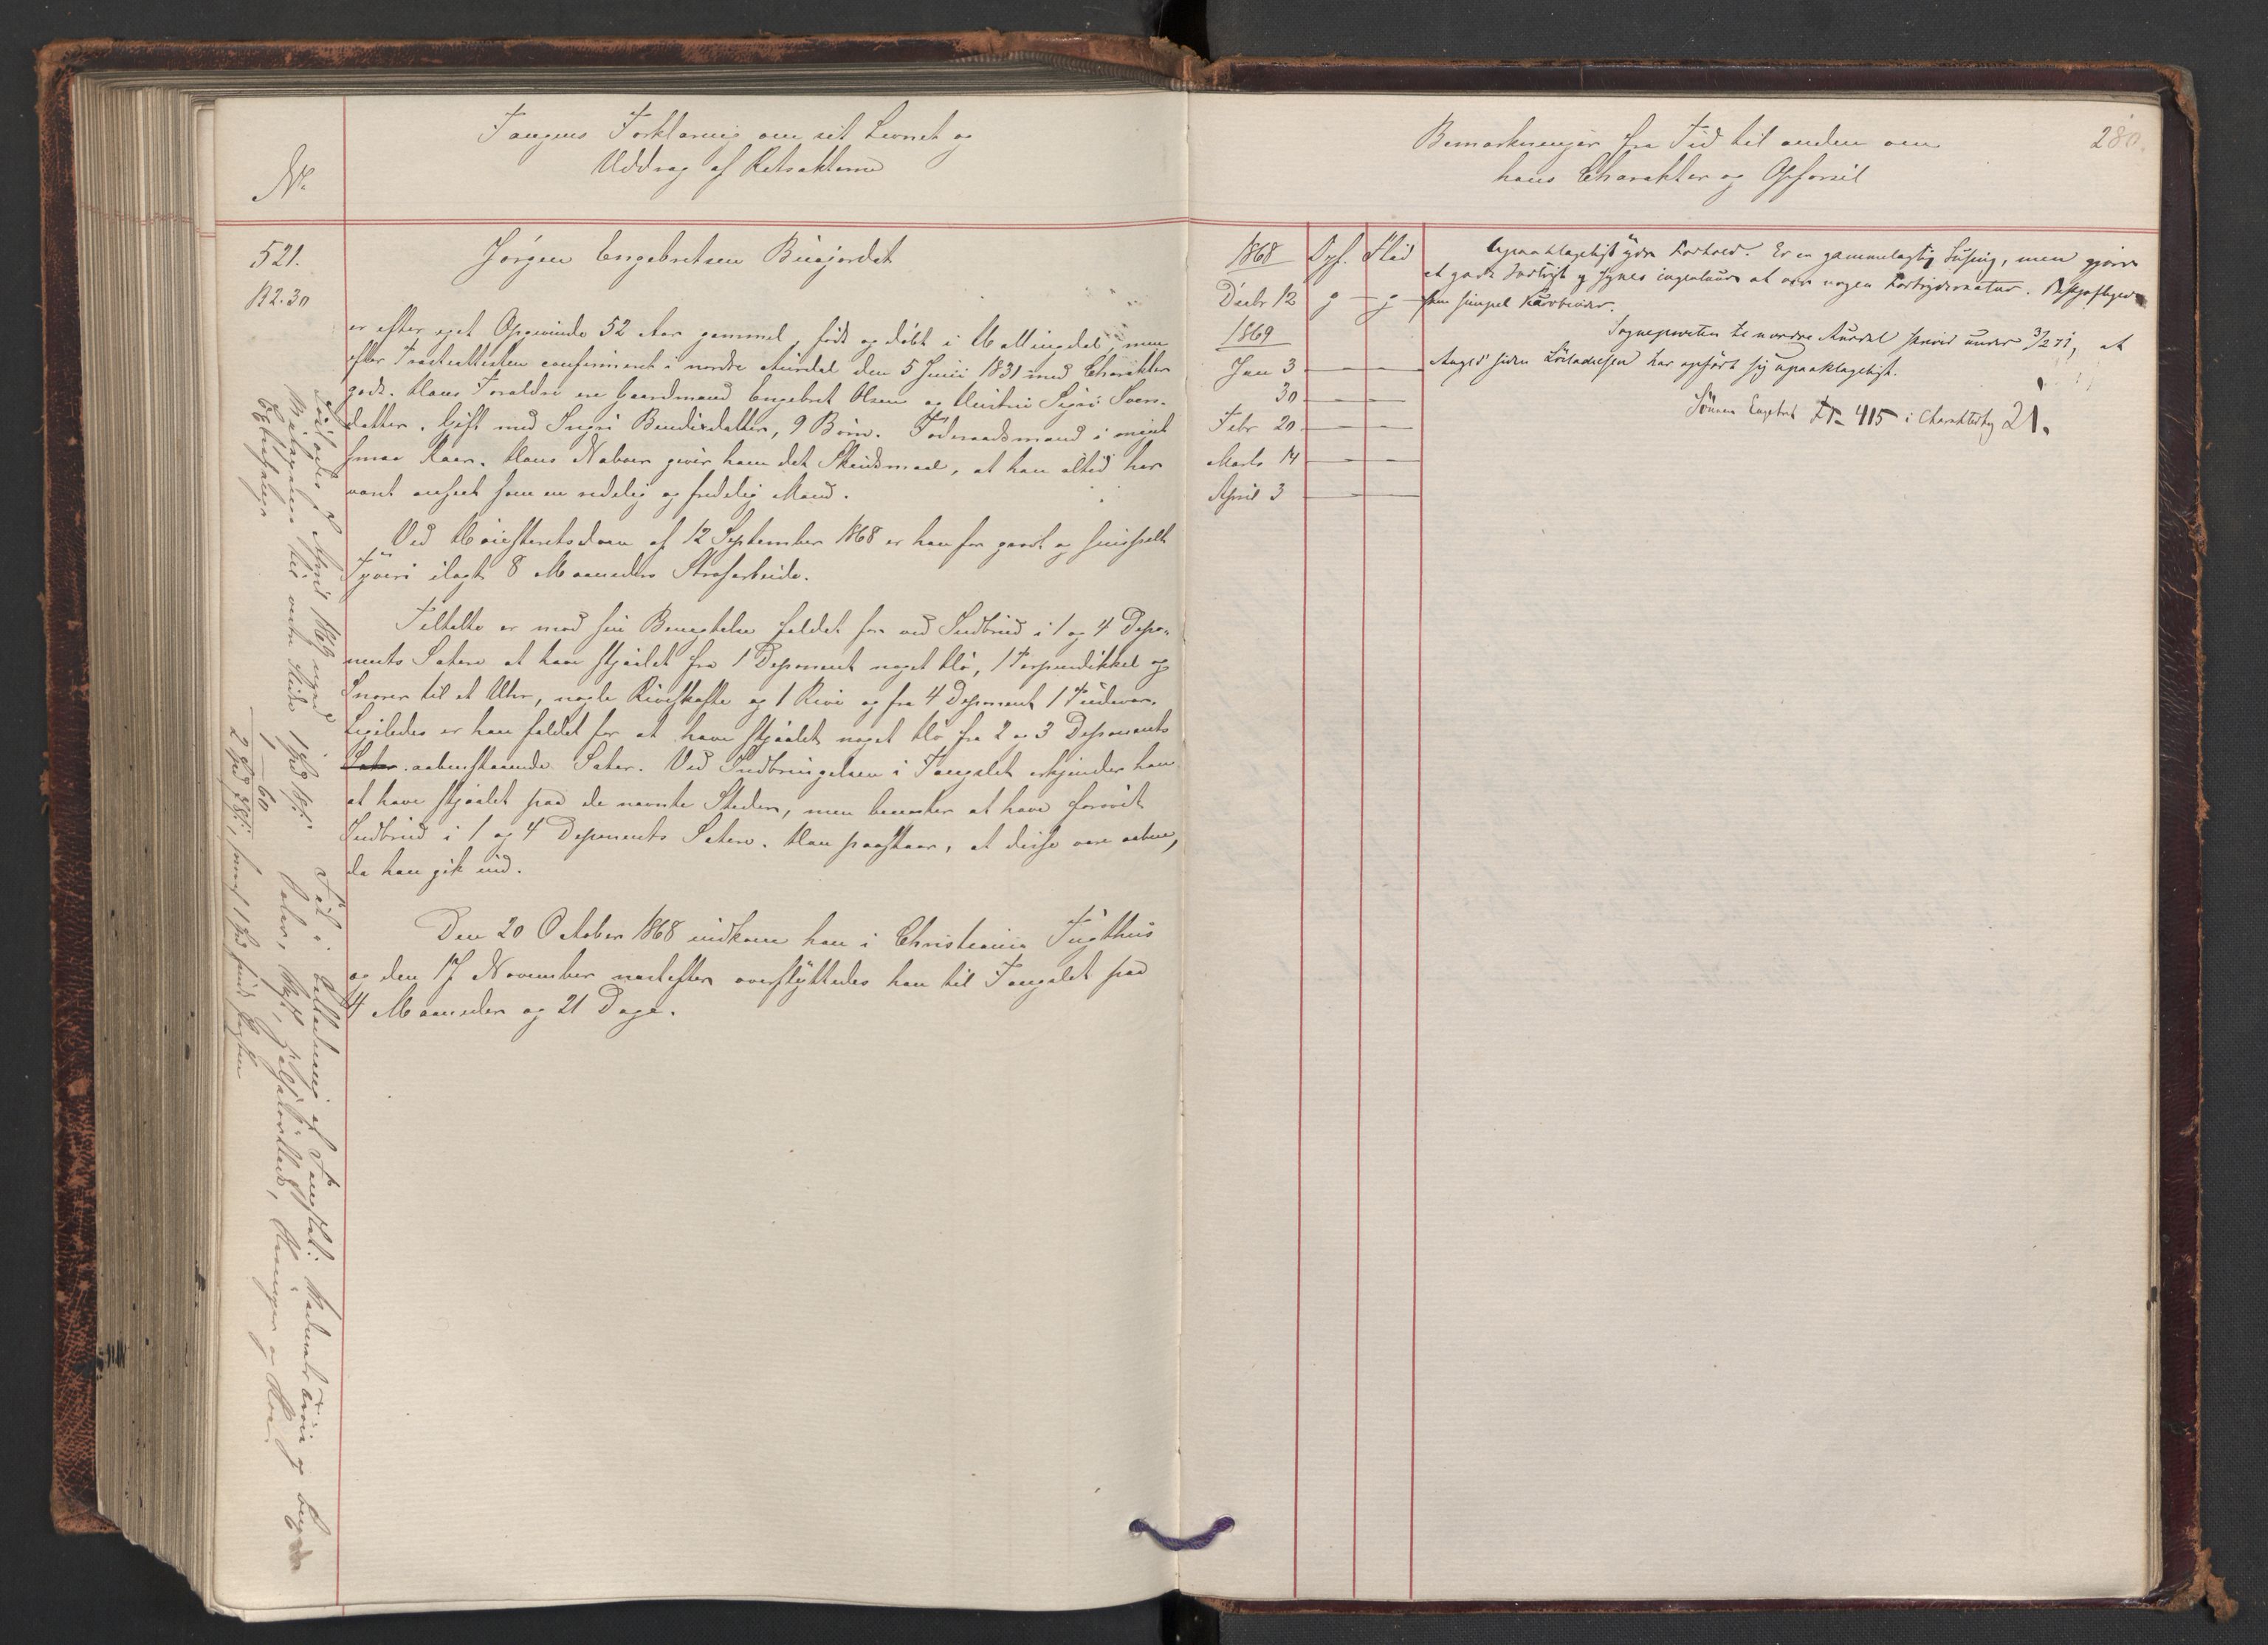 Fangens Forklaring om sit Levnet og
Uddrag af Retsakterne
No.
521.
B2.30
Jörgen Engebretsen Büajordet
er efter eget Opgivende 52 Aar gammel, födt og döbt i Hallingdal, men
efter Præsteattesten confirmeret i nordre Aurdal den 5 Juni 1831 med Charakter
godt. Hans Forældre ere Gaardmand Engebret Olsen og Hustru Sigri Svens-
datter. Gift med Ingri Bendixdatter, 9 Börn. Föderaadsmand i meget
smaa Kaar. Hans Naboer giver ham det Skudsmaal, at han altid har
været anseet som en redelig og fredelig Mand.
Ved Höiesteretsdom af 12 September 1868 er han for groft og simpelt
Tyveri ilagt 8 Maaneders Strafarbeide.
Tiltalte er mod sin Benegtelse fældet for ved Indbrud i 1 og 4 Depo-
nents Sætere at have stjaalet fra 1 Deponent noget Hö, 1 Perpendikkel og
Snorer til et Uhr, nogle Riveskafte og 1 Rive og fra 4 Deponent 1
Ligeledes er han fældet for at have stjaalet noget Hö fra 2 og 3 Deponents
Sæter aabenstaaende Sæter. Ved Indbringelsen i Fangslet erkjender han
at have stjaalet paa de nævnte Steder, men benegter at have forövet
Indbrud i 1 og 4 Deponents Sætere. Han paastaar, at disse vare aabne,
da han gik ind.
Den 20 October 1868 indkom han i Christiania Tugthus
og den 17 November næstefter overflyttedes han til Fangslet paa
4 Maaneder og 21 Dage.
Löslades 7 April 1869 med
Reisepenge til
1 Spd
1 — 60
2 Spd
Bemærkninger fra Tid til anden om
hans Charakter og Opförsel
280.
1868 Opf. Flid
Decbr 12 g — g
1869
Jan 3
30
Febr 20
Marts 14
April 3
Upaaklageligt ydre Forhold. Er en gammelagtig Susing, men gjörer
et godt Indtryk og synes ingenlunde at være nogen Forbrydernatur. Beskjæftiges
som simpel Kurvbinder.
Sognepresten til nordre Aurdal skriver under 3/2 71, at
Angjd siden Lösladelsen har opfört sig upaaklageligt.
Sönnen Engebret No 415 i Charakterbog 21.